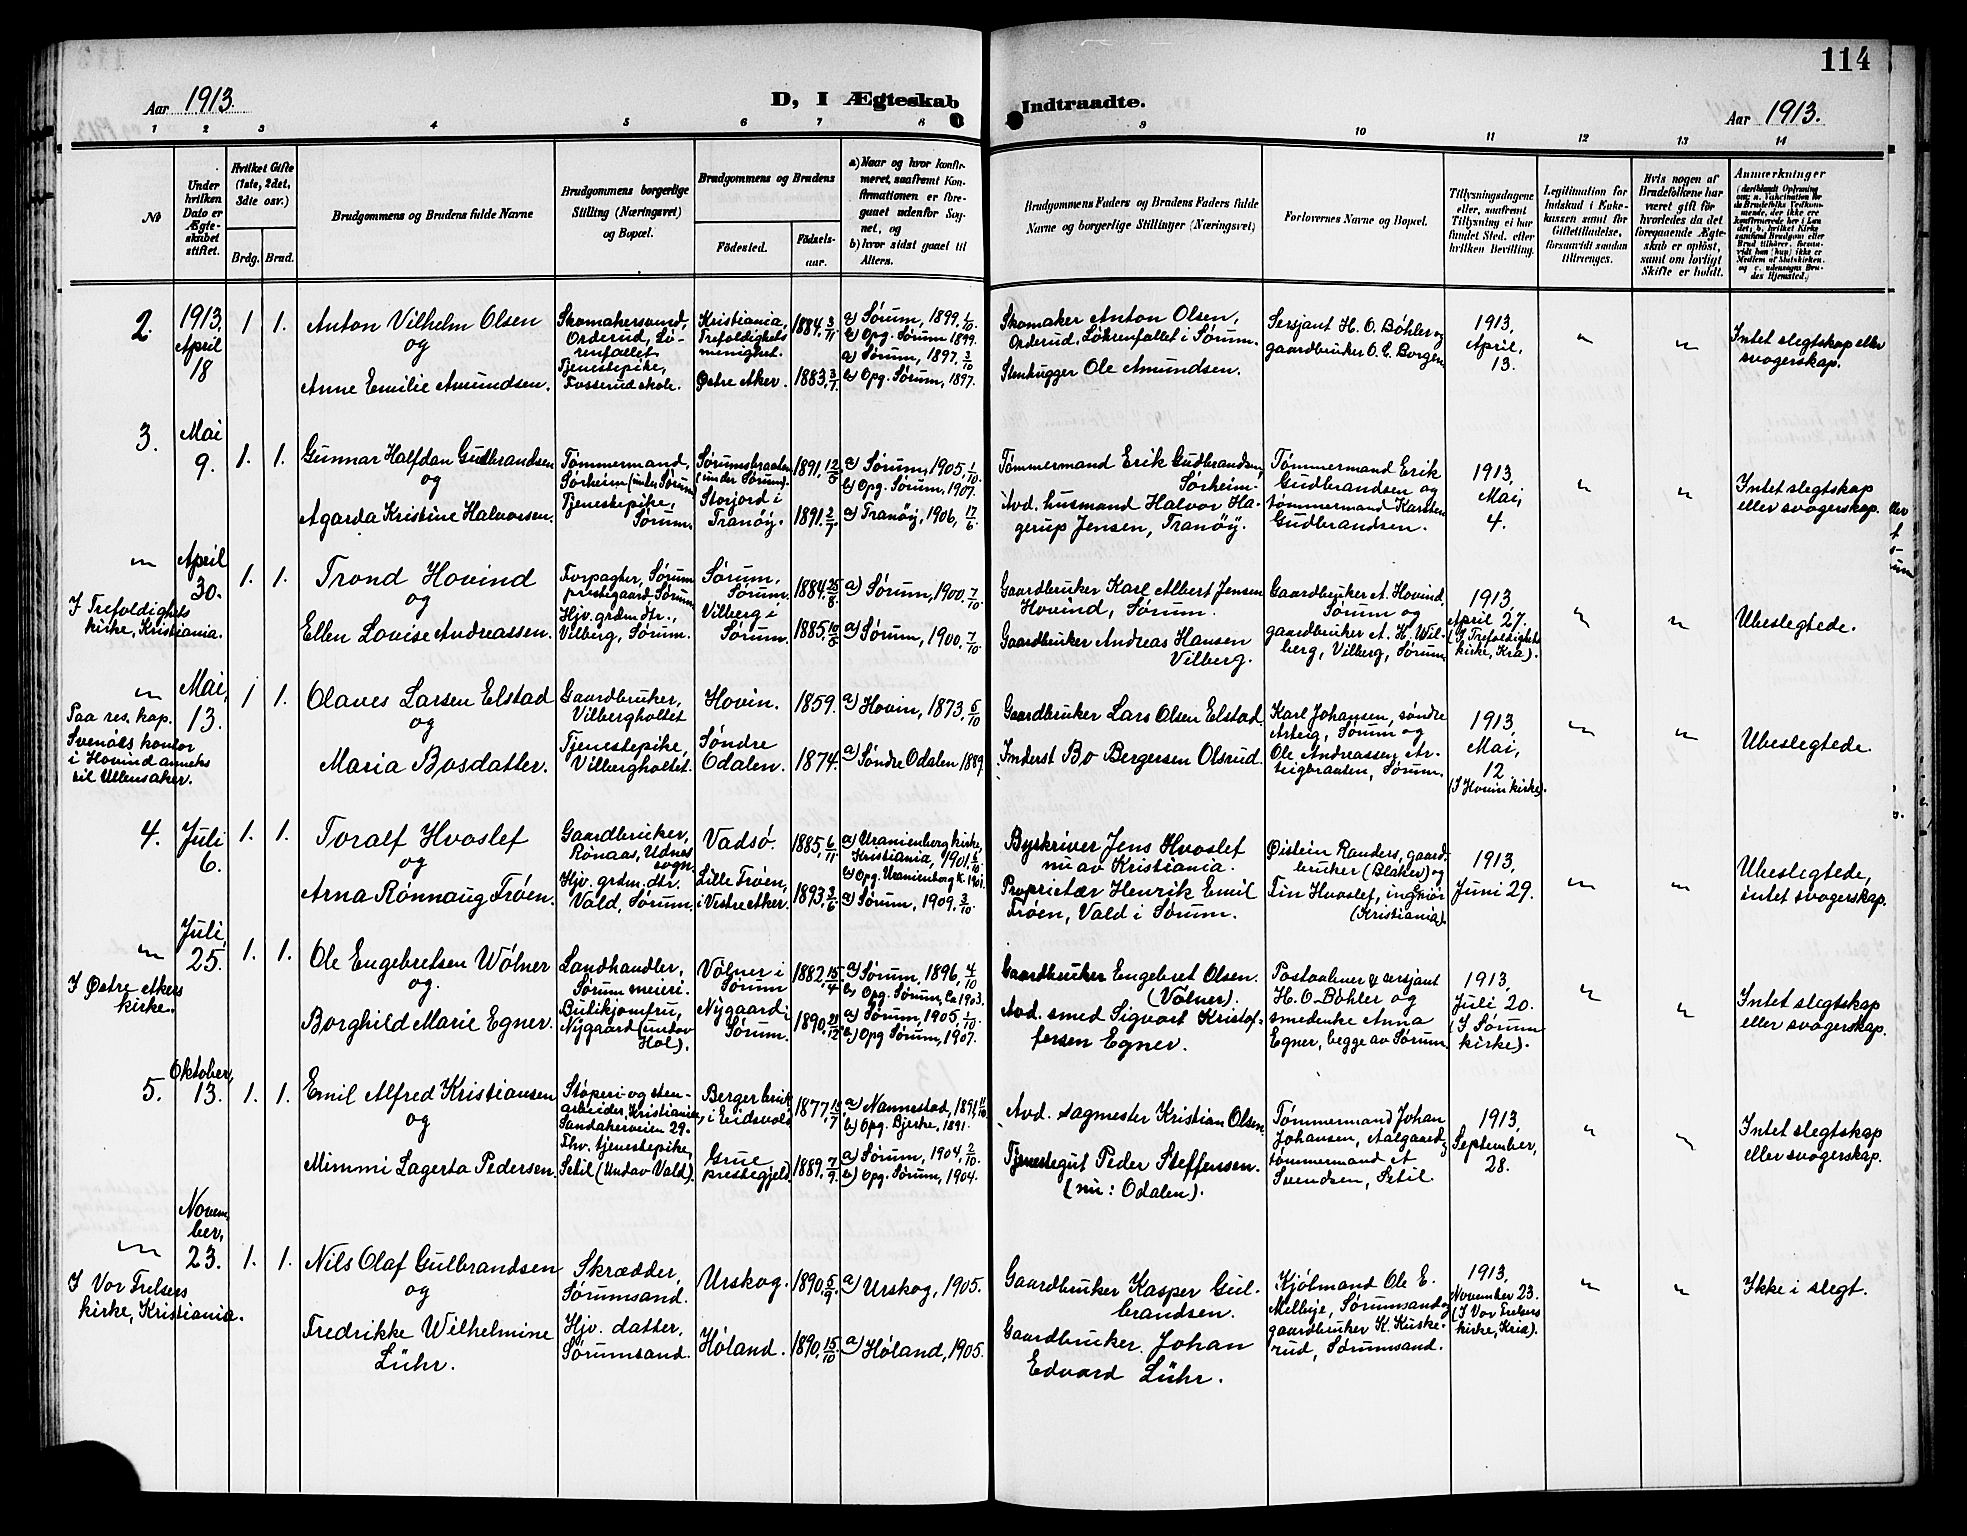 114
Aar 1913.
D, I Ægteskab
Indtraadte.
Aar 1913.
1 2 3 4 5 6 7 8 9 10 11 12 13 14
No
Under
hvilken
Dato er
Ægte-
skabet
stiftet.
Hvilket Gifte
(1ste, 2det,
3die osv.)
Brdg. Brud.
Brudgommens og Brudens fulde Navne
Brudgommens borgerlige
Stilling (Næringsvei)
og Bopæl.
Brudgommens og Brudens
Födested.
Födsels-
aar.
a) Naar og hvor konfir-
meret, saafremt Kon-
firmationen er fore-
gaaet udenfor Sog-
net, og
b) hvor sidst gaaet til
Alters.
Brudgommens Faders og Brudens Faders fulde
Navne og borgerlige Stillinger (Næringsvei)
Forlovernes Navne og Bopæl.
Tillysningsdagene
eller, saafremt
Tillysning ei har
fundet Sted, efter
hvilken Bevilling.
Legitimation for
Indskud i Enke-
kassen samt for
Giftetilladelse,
forsaavidt saadan
tiltrænges.
Hvis nogen af
Brudefolkene har
været gift för
hvorledes da det
foregaaende Ægte-
skab er oplöst,
samt om lovligt
Skifte er holdt.
Anmærkninger
2.
1913.
April
18
1 1.
Anton Vilhelm Olsen
og
Anne Emilie Amundsen.
Skomakersvend,
Orderud, Lö-
renfallet
Tjenestepike,
Fosserud skole.
Kristiania,
Trefoldighets
menighet.
Østre Aker.
1884, 3/11
1883, 3/7
a) Sørum, 1899. 1/10
b) Opg. Sørum 1899.
a) Sørum, 1897. 3/10
b) Opg. Sørum, 1897.
Skomaker Anton Olsen,
Orderud, Lökrenfallet i Sørum.
Stenhugger Ole Amundsen.
Sersjant H. O. Böhler og
gaardbruker O. E. Borgen
1913,
April,
13.
"
"
Intet slegtskap eller
svogerskap.
3.
Mai
9.
1. 1.
Gunnar Halfdan Gudbrandsen
og
Agarda Kristine Halvorsen.
Tømmermand,
Sørheim (under Sørum)
Tjenestepike,
Sørum.
Sørumsbraaten
(under Sørum).
Storjord i
Tranöy.
1891, 12/5
1891. 2/7
a) Sørum, 1905. 1/10
b) Opg. Sørum, 1907.
a) Tranöy, 1906, 17/6
Tømmermand Erik Gudbrandsen,
Sørheim.
Avd. husmand Halvor Ha-
gerup Jensen, Tranöy.
Tømmermand Erik
Gudbrandsen og
tømmermand Karsten
Gudbrandsen.
1913,
Mai,
4.
"
"
Intet slegtskap
eller svogerskap.
"
April
30.
I Trefoldighets
kirke, Kristiania.
1. 1.
Trond Hovind
og
Ellen Lovise Andreassen.
Forpagter, Sørum
prestegaard, Sørum
Hjv. grdm. dtr.,
Vilberg, Sørum.
Sørum,
Sørum.
Vilberg i
Sørum.
1884. 25/8
1885, 10/5
a) Sørum, 1900. 7/10
a) Sørum, 1900. 7/10
Gaardbruker Karl Albert Jensen
Hovind, Sørum.
Gaardbruker Andreas Hansen
Vilberg.
Gaardbruker A. Hovind,
Sørum og
gaardbruker A. H. Wil-
berg, Vilberg, Sørum
1913,
April 27.
(I Trefoldighets
kirke, Kra).
"
"
Ubeslegtede.
"
Mai,
13.
Paa res. kap.
Svenöes kontor
i Hovind anneks
til Ullensaker.
1 1.
Olaves Larsen Elstad
og
Maria Bosdatter.
Gaardbruker,
Vilbergholtet
Tjenestepike,
Vilbergholtet.
Hovin.
Søndre
Odalen.
1859.
1874.
a) Hovin, 1873, 5/10
a) Söndre Odalen 1889.
Gaardbruker Lars Olsen Elstad.
Inderst Bo Bergersen Olsrud.
Karl Johansen, søndre
Arteig, Sørum og
Ole Andreassen, Ar-
teigbraaten, Sørum.
1913,
Mai,
12.
(I Hovin kirke).
"
"
Ubeslegtede.
4.
Juli
6.
1. 1.
Toralf Hvoslef
og
Arna Rönnaug Tröen.
Gaardbruker,
Rönaas, Udnes
sogn.
Hjv. grdm. dtr.
Vald, Sørum.
Vadsö.
Lille Tröen,
i Vestre Aker.
1885, 6/11
1893, 3/6
a) Uranienborg kirke,
Kristiania, 1901. 6/10
b) Opg. Uranienborg k. 1901.
a) Sørum, 1909. 3/10
Byskriver Jens Hvoslef
nu av Kristiania.
Proprietær Henrik Emil
Tröen, Vald i Sørum.
Øistein Randers, gaard-
bruker (Blaker) og
Fin Hvoslef, ingeniør
(Kristiania).
1913,
Juni 29.
"
"
Ubeslegtede,
intet svogerskap.
"
Juli,
25.
I Østre Akers
kirke.
1. 1.
Ole Engebretsen Wölner
og.
Borghild Marie Egner.
Landhandler,
Sørum meieri.
Butikjomfru,
Nygaard (undav
Hol).
Völner i
Sørum
Nygaard i
Sørum.
1882, 15/4
1890, 21/12
a) Sørum, 1896, 4/10
b) Opg. Sørum, Ca 1903.
a) Sørum, 1905, 1/10
b) Opg Sørum, 1907.
Gaardbruker Engebret Olsen.
(Völner).
Avd. smed Sigvart Kristof-
fersen Egner.
Postaabner & sersjant
H. O. Böhler og
smedenke Anna
Egner, begge av Sørum.
1913,
Juli 20.
(I Sørum
kirke).
"
"
Intet slegtskap
eller svogerskap.
5.
Oktober,
13.
1. 1.
Emil Alfred Kristiansen
og
Mimmi Lagerta Pedersen.
Støperi- og sten-
arbeider, Kristiania,
Sandakerveien 29.
Fhv. tjenestepike,
Setil (Undav Vald).
Berger bruk
i Eidsvold
Grue
prestegjeld.
1877, 16/7
1889, 7/9
a) Nannestad, 1891, 11/10
b) Opg. Bjerke, 1891.
a) Sørum, 1904. 2/10
b) Opg. Sørum, 1904.
Avd. sagmester Kristian Olsen.
Tjenestegut Peder Steffensen.
(nu: Odalen).
Tømmermand Johan
Johansen, Aalgaard &
tømmermand A
Svendsen, Setil.
1913,
September,
28.
"
"
Intet slegtskap
eller svogerskap.
"
Novem-
ber,
23.
I Vor Frelsers
kirke, Kristiania.
1. 1.
Nils Olaf Gulbrandsen
og
Fredrikke Wilhelmine
Lühr.
Skrædder,
Sørumsand.
Hjv. datter,
Sørumsand.
Urskog.
Höland.
1890, 5/9
1890, 15/10
a) Urskog, 1905.
a) Höland, 1905.
Gaardbruker Kasper Gul-
brandsen.
Gaardbruker Johan
Edvard Lühr.
Kjölmand Ole E.
Melbye, Sørumsand og
gaardbruker K. Kuske-
rud, Sørumsand.
1913,
November 23.
(I Vor Frelsers
kirke, Kria).
"
"
Ikke i slegt.